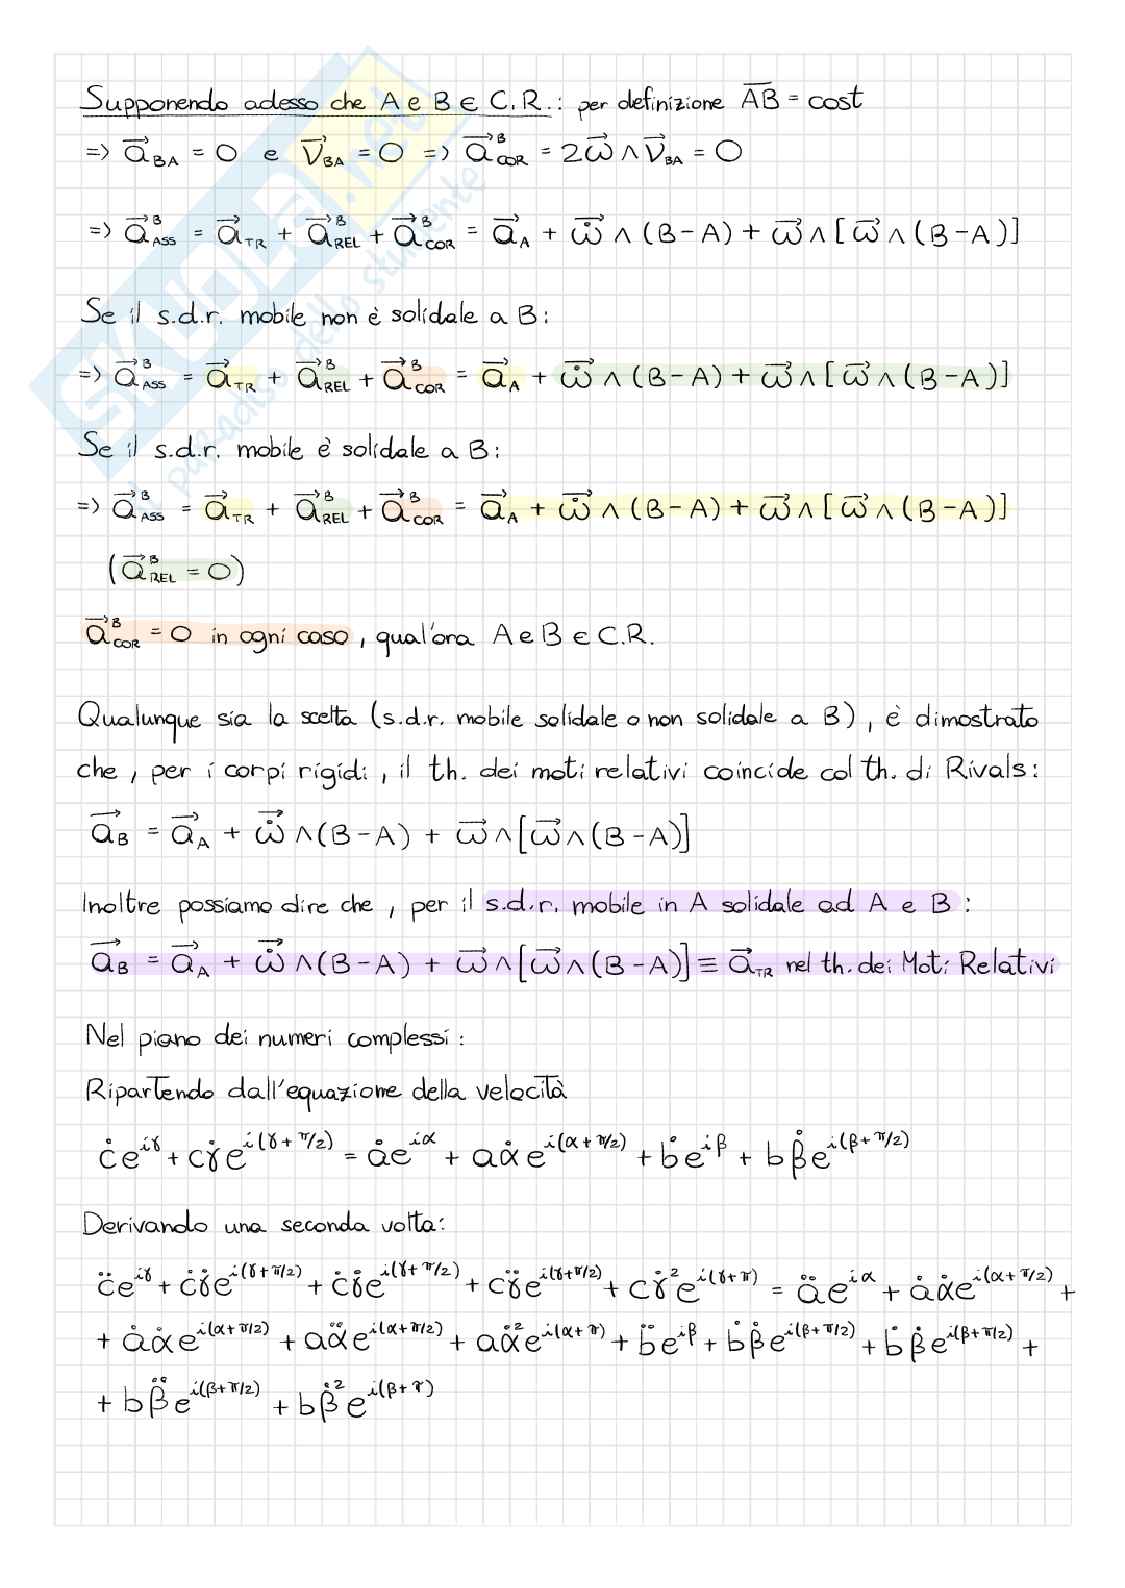 Supponendo adesso che A e B ∈ C.R.: per definizione A̅B̅ = cost
=> a⃗_BA = 0 e v⃗_BA = 0 => a⃗^B_COR = 2ω⃗ ∧ v⃗_BA = 0
=> a⃗^B_ASS = a⃗_TR + a⃗^B_REL + a⃗^B_COR = a⃗_A + ω̇⃗ ∧ (B-A) + ω⃗ ∧ [ω⃗ ∧ (B-A)]
Se il s.d.r. mobile non è solidale a B:
=> a⃗^B_ASS = a⃗_TR + a⃗^B_REL + a⃗^B_COR = a⃗_A + ω̇⃗ ∧ (B-A) + ω⃗ ∧ [ω⃗ ∧ (B-A)]
Se il s.d.r. mobile è solidale a B:
=> a⃗^B_ASS = a⃗_TR + a⃗^B_REL + a⃗^B_COR = a⃗_A + ω̇⃗ ∧ (B-A) + ω⃗ ∧ [ω⃗ ∧ (B-A)]
(a⃗^B_REL = 0)
a⃗^B_COR = 0 in ogni caso, qual'ora A e B ∈ C.R.
Qualunque sia la scelta (s.d.r. mobile solidale o non solidale a B), è dimostrato
che, per i corpi rigidi, il th. dei moti relativi coincide col th. di Rivals:
a⃗_B = a⃗_A + ω̇⃗ ∧ (B-A) + ω⃗ ∧ [ω⃗ ∧ (B-A)]
Inoltre possiamo dire che, per il s.d.r. mobile in A solidale ad A e B:
a⃗_B = a⃗_A + ω̇⃗ ∧ (B-A) + ω⃗ ∧ [ω⃗ ∧ (B-A)] ≡ a⃗_TR nel th. dei Moti Relativi
Nel piano dei numeri complessi:
Ripartendo dall'equazione della velocità
ċe^{iγ} + cγ̇e^{i(γ+π/2)} = ȧe^{iα} + aα̇e^{i(α+π/2)} + ḃe^{iβ} + bβ̇e^{i(β+π/2)}
Derivando una seconda volta:
c̈e^{iγ} + ċγ̇e^{i(γ+π/2)} + ċγ̇e^{i(γ+π/2)} + cγ̈e^{i(γ+π/2)} + cγ̇²e^{i(γ+π)} = äe^{iα} + ȧα̇e^{i(α+π/2)} +
+ ȧα̇e^{i(α+π/2)} + aα̈e^{i(α+π/2)} + aα̇²e^{i(α+π)} + b̈e^{iβ} + ḃβ̇e^{i(β+π/2)} + ḃβ̇e^{i(β+π/2)} +
+ bβ̈e^{i(β+π/2)} + bβ̇²e^{i(β+π)}
SKUOLA.net
il paradiso dello studente